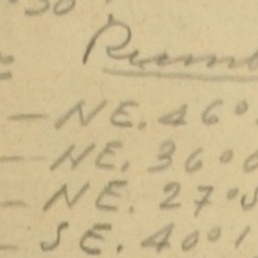 30
Rumb
— NE. 46°
— NE. 36°0
— NE. 27°5
— SE. 40°1